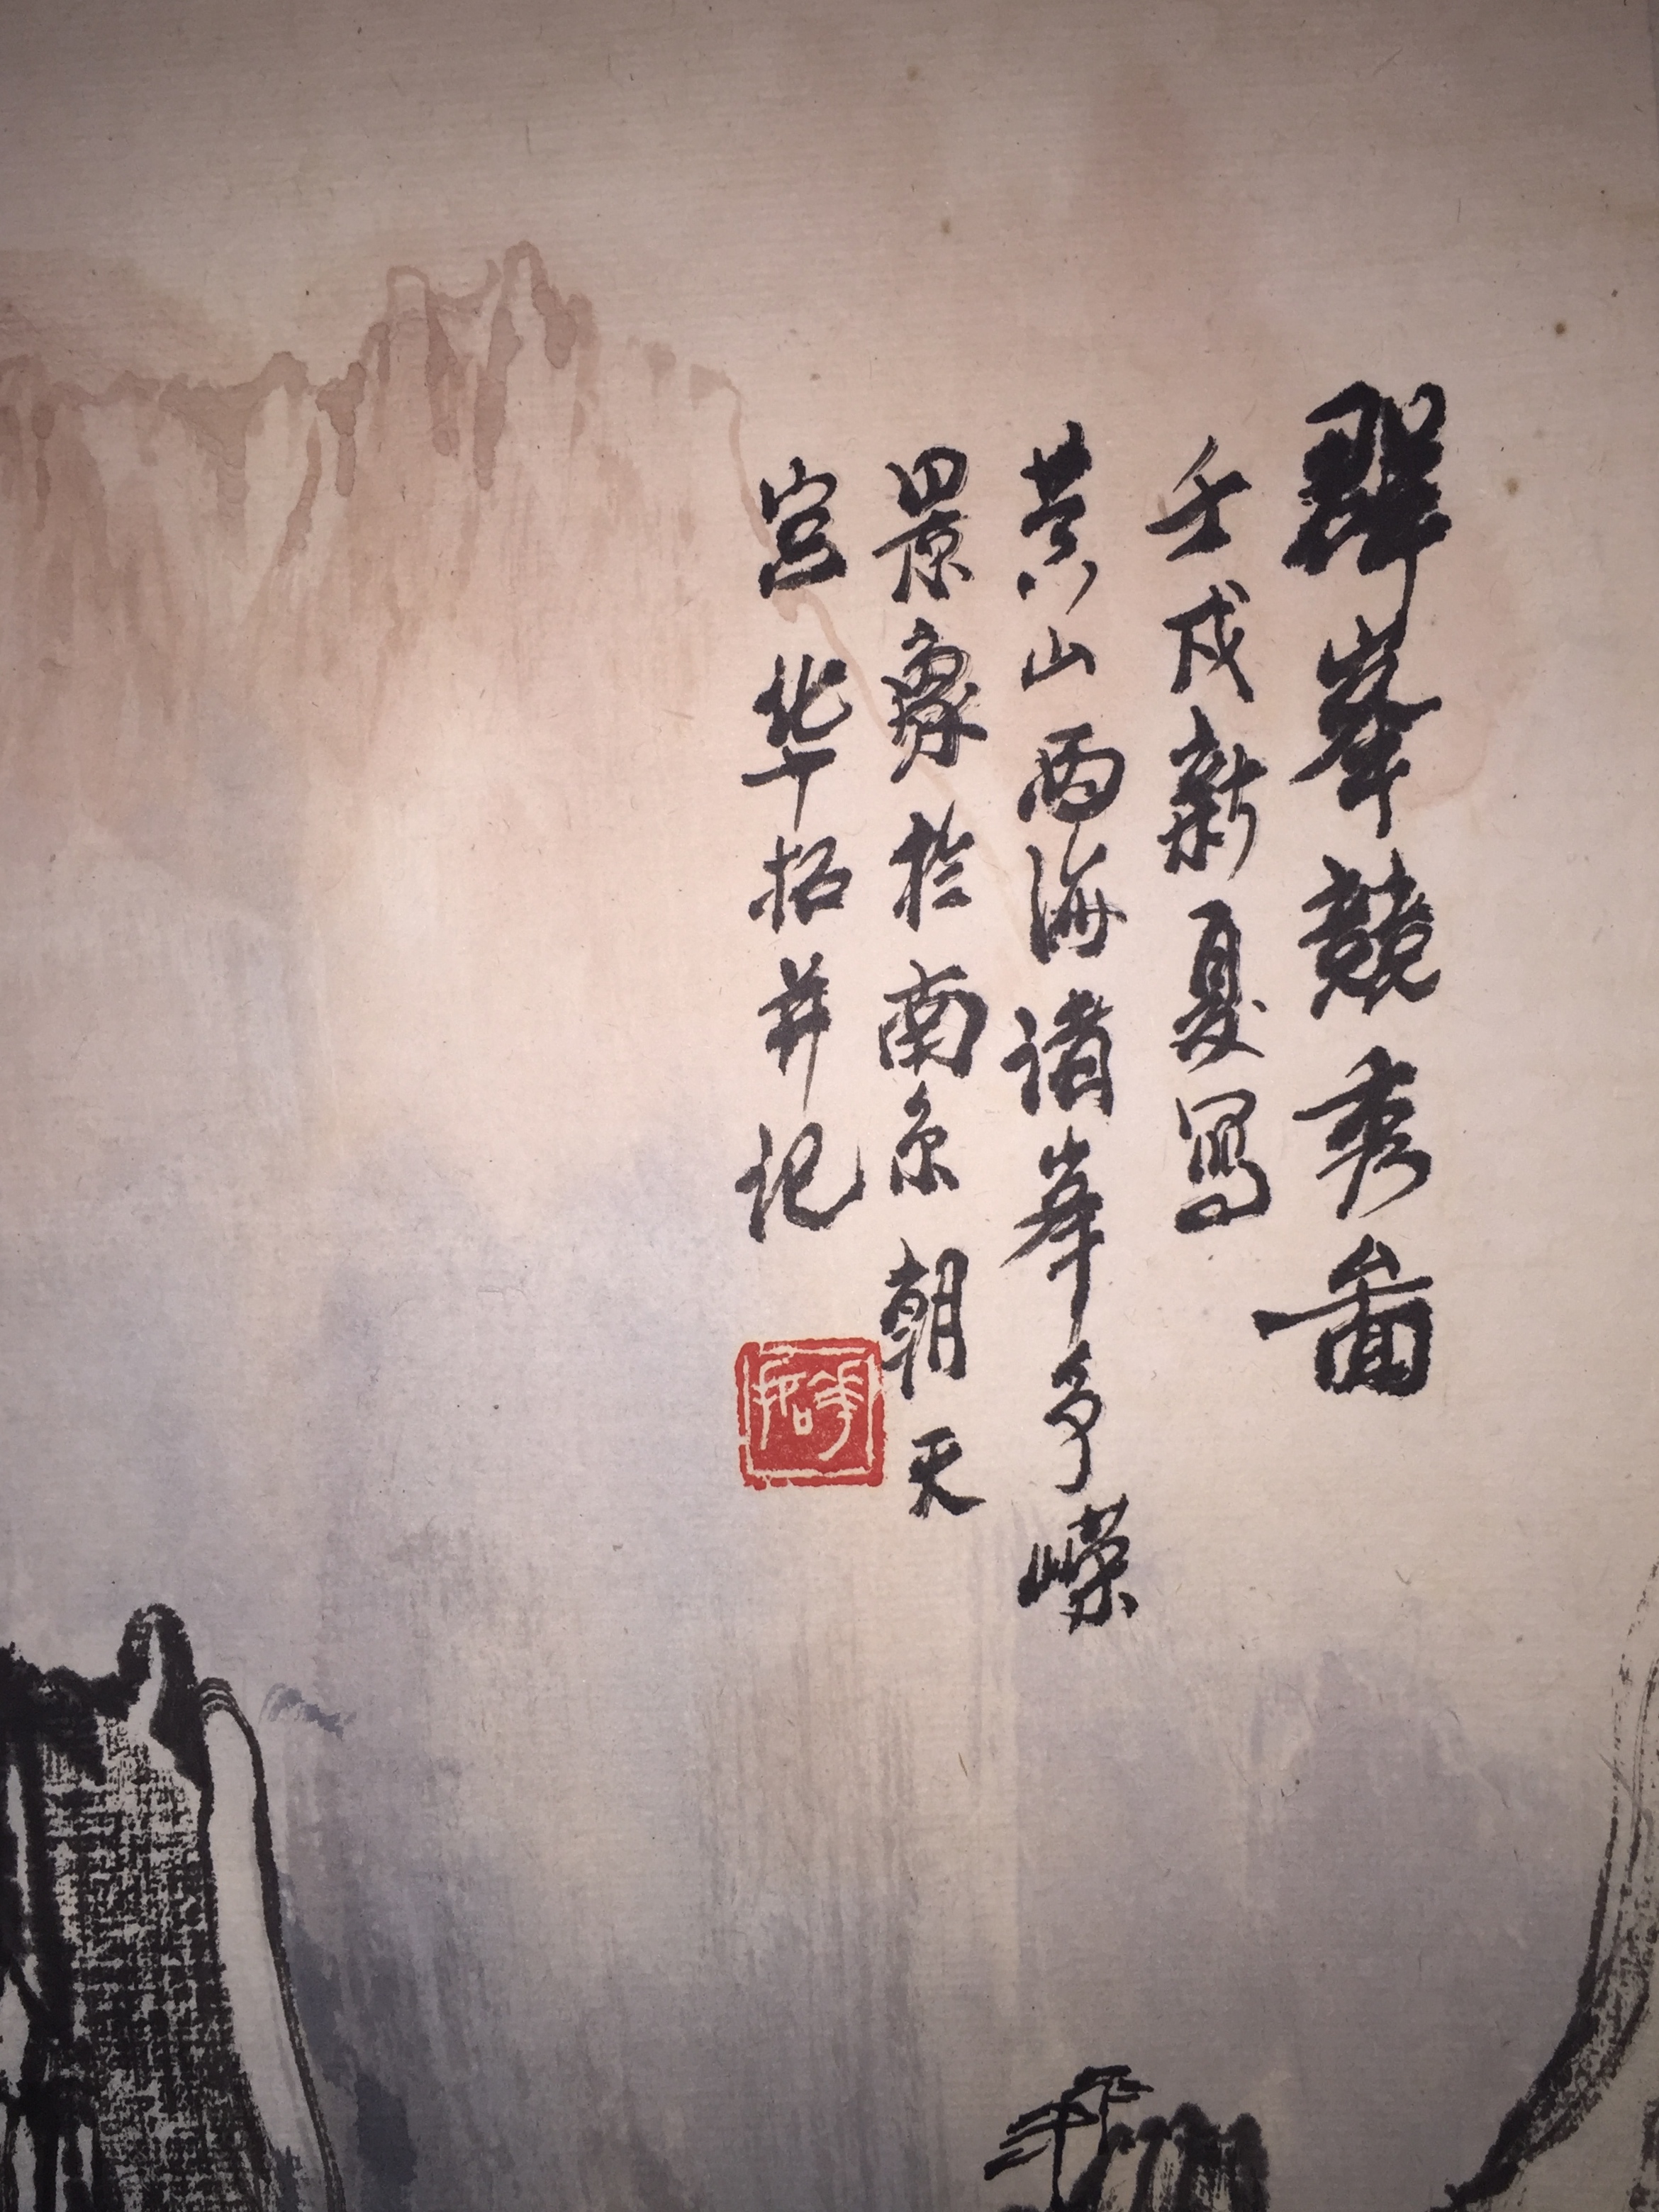 群峯競秀圖
壬戌新夏寫
黄山西海诸峯争嶸
景象於南京朝天
宫 华拓并记
华拓